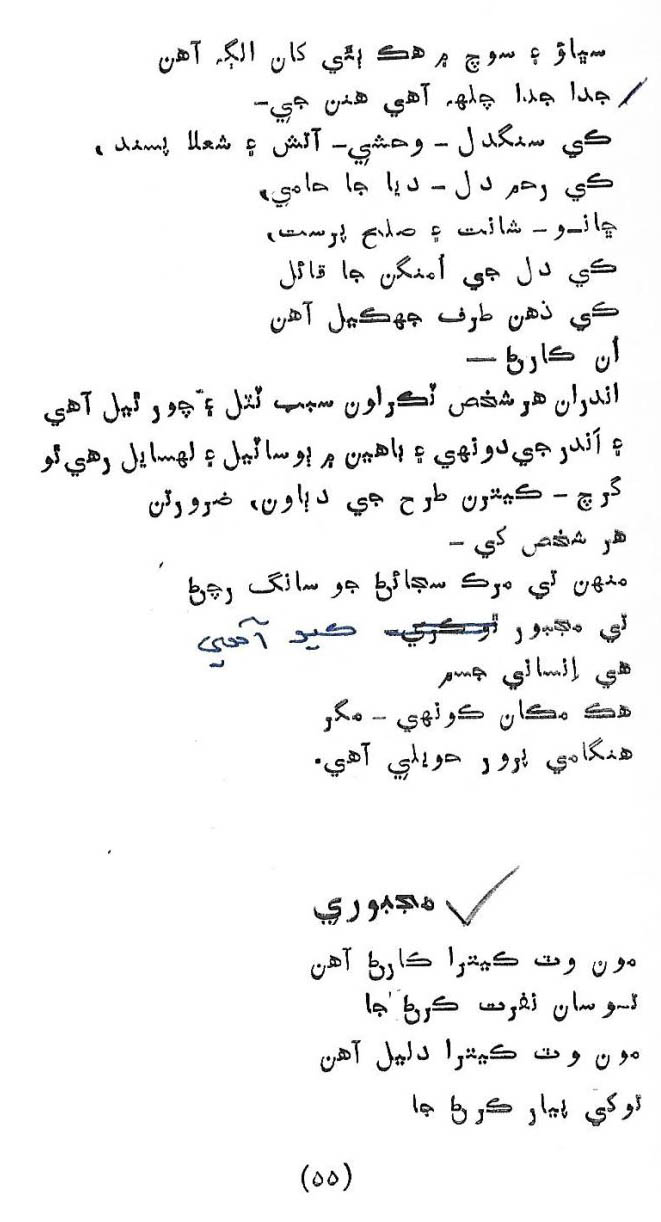 سڀاؤ ۽ سوچ ۾ هڪ ٻئي کان الڳ آهن
جدا جدا چلهه آهي هنن جي-
ڪي سنگدل - وحشي - آتش ۽ شعلا پسند،
ڪي رحم دل - ديا جا حامي،
شانت ۽ صلح پرست،
ڪي دل جي اُمنگن جا قائل
ڪي ذهن طرف جهڪيل آهن
اُن ڪارڻ —
اندران هر شخص ٽڪراون سبب ٽٽل ۽ چور ٿيل آهي
۽ اَندر جي دونهي ۽ باهين ۾ ٻوساٽيل ۽ لهسايل رهي ٿو
گرچ - ڪيترن طرح جي دٻاون، ضرورتن
هر شخص کي -
منهن تي مرڪ سجائڻ جو سانگ رچڻ
تي مجبور ڪيو آهي
هي اِنساني جسم
هڪ مڪان ڪونهي - مگر
هنگامي پرور حويلي آهي.
مجبوري
مون وٽ ڪيترا ڪارڻ آهن
توسان نفرت ڪرڻ جا
مون وٽ ڪيترا دليل آهن
توکي پيار ڪرڻ جا
(٥٥)